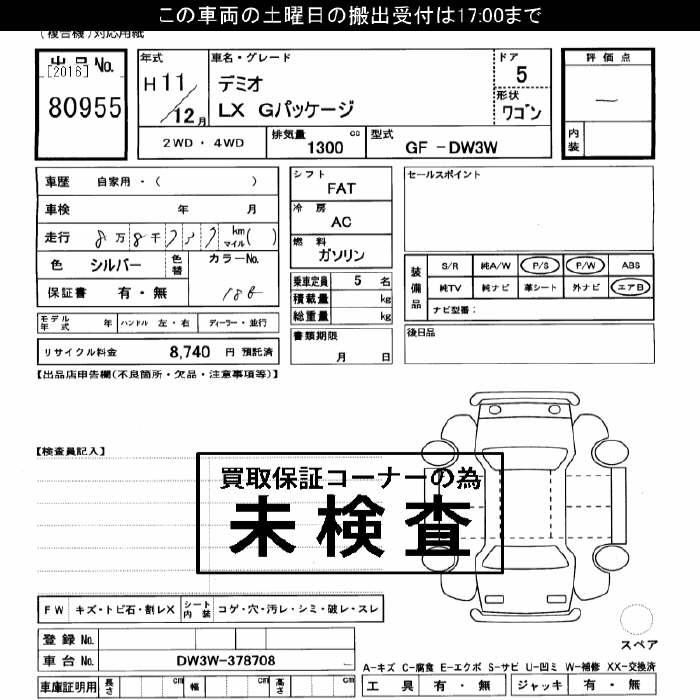 この車両の土曜日の搬出受付は17:00まで
(複合機)対応用紙
出品No.
[2016]
80955
年式
H11/12月
車名・グレード
デミオ
LX Gパッケージ
ドア
5
形状
ワゴン
2WD・4WD
排気量
1300
cc
型式
GF-DW3W
評価点
―
内装
車歴 自家用・( )
車検 年 月
走行 8万8千 km マイル( )
色 シルバー 色替 カラーNo.
保証書 有・無
シフト
FAT
冷房
AC
燃料
ガソリン
乗車定員 5 名
積載量 kg
総重量 kg
書類期限
月 日
セールスポイント
装備品
S/R 純A/W P/S P/W ABS
純TV 純ナビ 革シート 外ナビ エアB
ナビ型番:
後日品
モデル年式 年 ハンドル 左・右 ディーラー・並行
リサイクル料金 8,740 円 預託済
【出品店申告欄(不良箇所・欠品・注意事項等)】
【検査員記入】
買取保証コーナーの為
未検査
FW キズ・トビ石・割レX シート内装 コゲ・穴・汚レ・シミ・破レ・スレ
登録No.
車台No. DW3W-378708
車庫証明用 長さ cm 幅 cm 高さ cm
スペア
A-キズ C-腐食 E-エクボ S-サビ U-凹ミ W-補修 XX-交換済
工具 有・無 ジャッキ 有・無